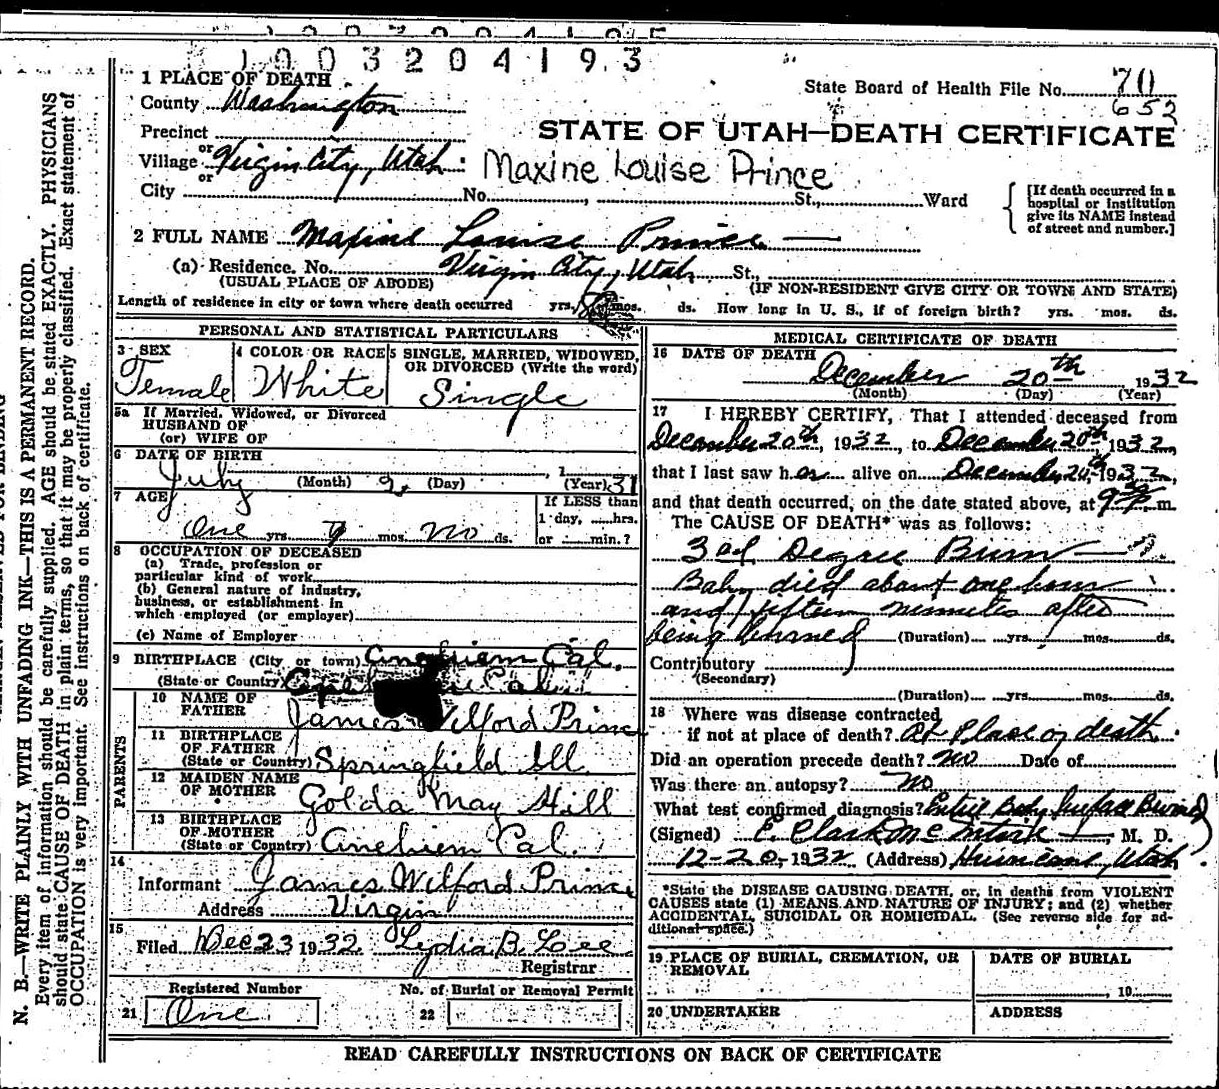 1 0 0 3 2 0 4 1 9 3
1 PLACE OF DEATH
State Board of Health File No. 70
County Washington
653
Precinct
STATE OF UTAH—DEATH CERTIFICATE
or
Village Virgin City, Utah : Maxine Louise Prince
or
City No. , St., Ward
[If death occurred in a
hospital or institution
give its NAME instead
of street and number.]
2 FULL NAME Maxine Louise Prince
(a) Residence. No. Virgin City, Utah St.,
(USUAL PLACE OF ABODE) (IF NON-RESIDENT GIVE CITY OR TOWN AND STATE)
Length of residence in city or town where death occurred yrs. mos. ds. How long in U. S., if of foreign birth? yrs. mos. ds.
PERSONAL AND STATISTICAL PARTICULARS
3 SEX
Female
4 COLOR OR RACE
White
5 SINGLE, MARRIED, WIDOWED,
OR DIVORCED (Write the word)
Single
5a If Married, Widowed, or Divorced
HUSBAND OF
(or) WIFE OF
6 DATE OF BIRTH
July (Month) 9, (Day) 1 31 (Year)
7 AGE
One yrs. mos. No ds.
If LESS than
1 day, hrs.
or min.?
8 OCCUPATION OF DECEASED
(a) Trade, profession or
particular kind of work
(b) General nature of industry,
business, or establishment in
which employed (or employer)
(c) Name of Employer
9 BIRTHPLACE (City or town) Aneheim Cal.
(State or Country)
PARENTS
10 NAME OF
FATHER James Wilford Prince
11 BIRTHPLACE
OF FATHER
(State or Country) Springfield Ill
12 MAIDEN NAME
OF MOTHER Golda May Hill
13 BIRTHPLACE
OF MOTHER
(State or Country) Aneheim Cal.
14
Informant James Wilford Prince
Address Virgin
15
Filed Dec 23 1932 Lydia B. Lee
Registrar
Registered Number
21 One
No. of Burial or Removal Permit
22
MEDICAL CERTIFICATE OF DEATH
16 DATE OF DEATH
December 20th 1932
(Month) (Day) (Year)
17 I HEREBY CERTIFY, That I attended deceased from
December 20th, 1932, to December 20th 1932,
that I last saw her alive on December 20th, 1932,
and that death occurred, on the date stated above, at 9 m.
The CAUSE OF DEATH* was as follows:
3rd Degree Burn
Baby died about one hour
and fifteen minutes after
being burned (Duration) yrs. mos. ds.
Contributory
(Secondary)
(Duration) yrs. mos. ds.
18 Where was disease contracted
if not at place of death? At Place of death
Did an operation precede death? No Date of
Was there an autopsy? No
What test confirmed diagnosis? Entire Body Surface Burned
(Signed) E. Clark McIntire M. D.
12-20, 1932 (Address) Hurricane, Utah
*State the DISEASE CAUSING DEATH, or, in deaths from VIOLENT
CAUSES state (1) MEANS AND NATURE OF INJURY; and (2) whether
ACCIDENTAL, SUICIDAL OR HOMICIDAL. (See reverse side for ad-
ditional space.)
19 PLACE OF BURIAL, CREMATION, OR
REMOVAL
DATE OF BURIAL
, 19
20 UNDERTAKER
ADDRESS
READ CAREFULLY INSTRUCTIONS ON BACK OF CERTIFICATE
N. B.—WRITE PLAINLY WITH UNFADING INK—THIS IS A PERMANENT RECORD.
Every item of information should be carefully supplied. AGE should be stated EXACTLY. PHYSICIANS
should state CAUSE OF DEATH in plain terms, so that it may be properly classified. Exact statement of
OCCUPATION is very important. See instructions on back of certificate.